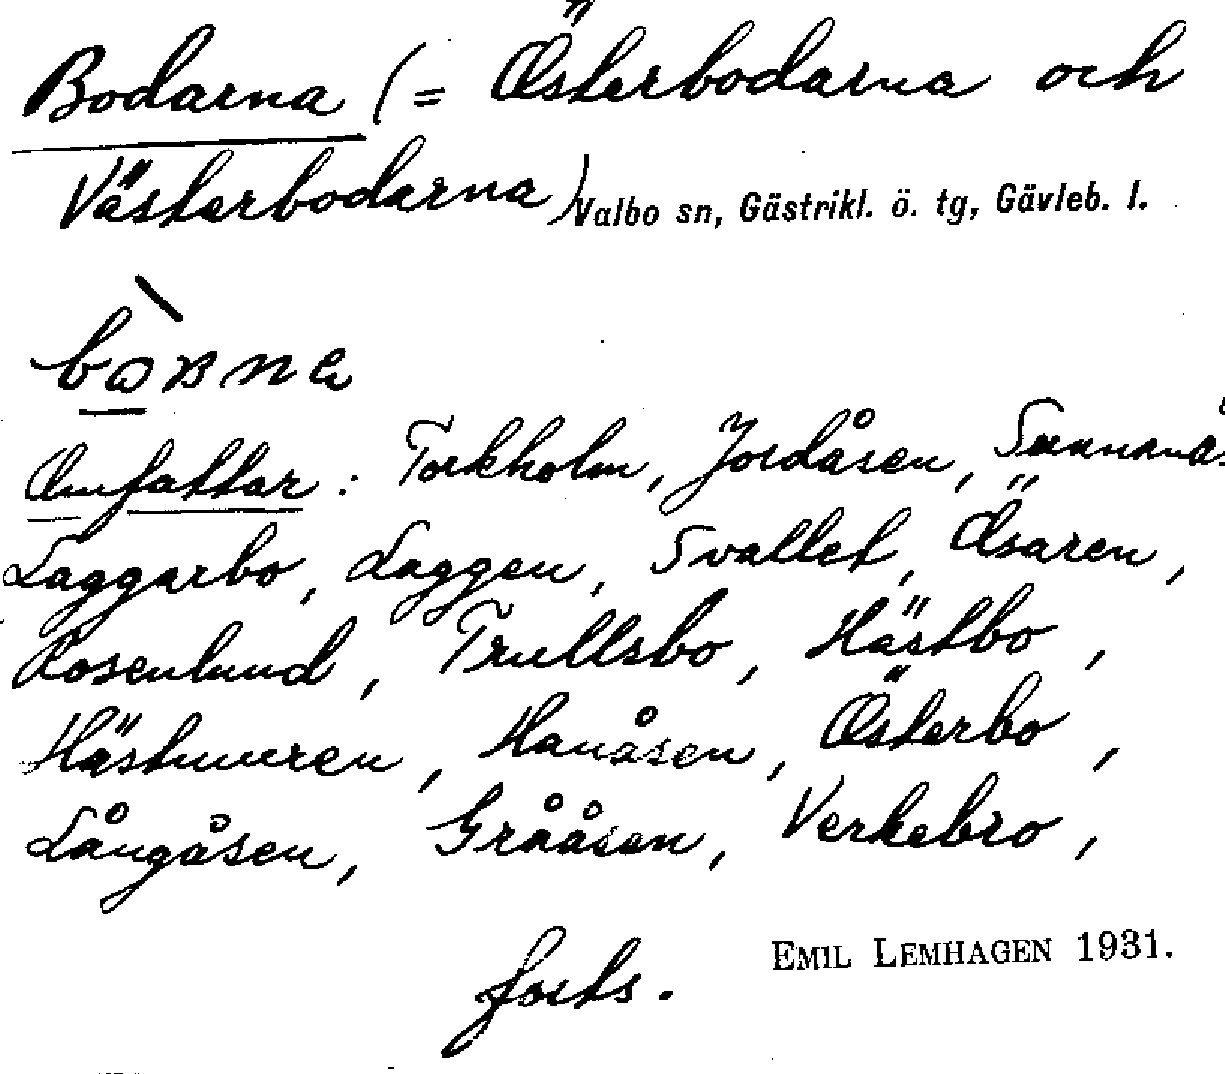 Bodarna (= Österbodarna och
Västerbodarna) Valbo sn, Gästrikl. ö. tg, Gävleb. l.
Omfattar: Torkholm, Jordåsen,
Laggarbo, Laggen, Svallet, Ösaren,
Rosenlund, Trullsbo, Hästbo,
Hästmuren, Hanåsen, Österbo,
Långåsen, Grååsen, Verkebro,
forts. EMIL LEMHAGEN 1931.